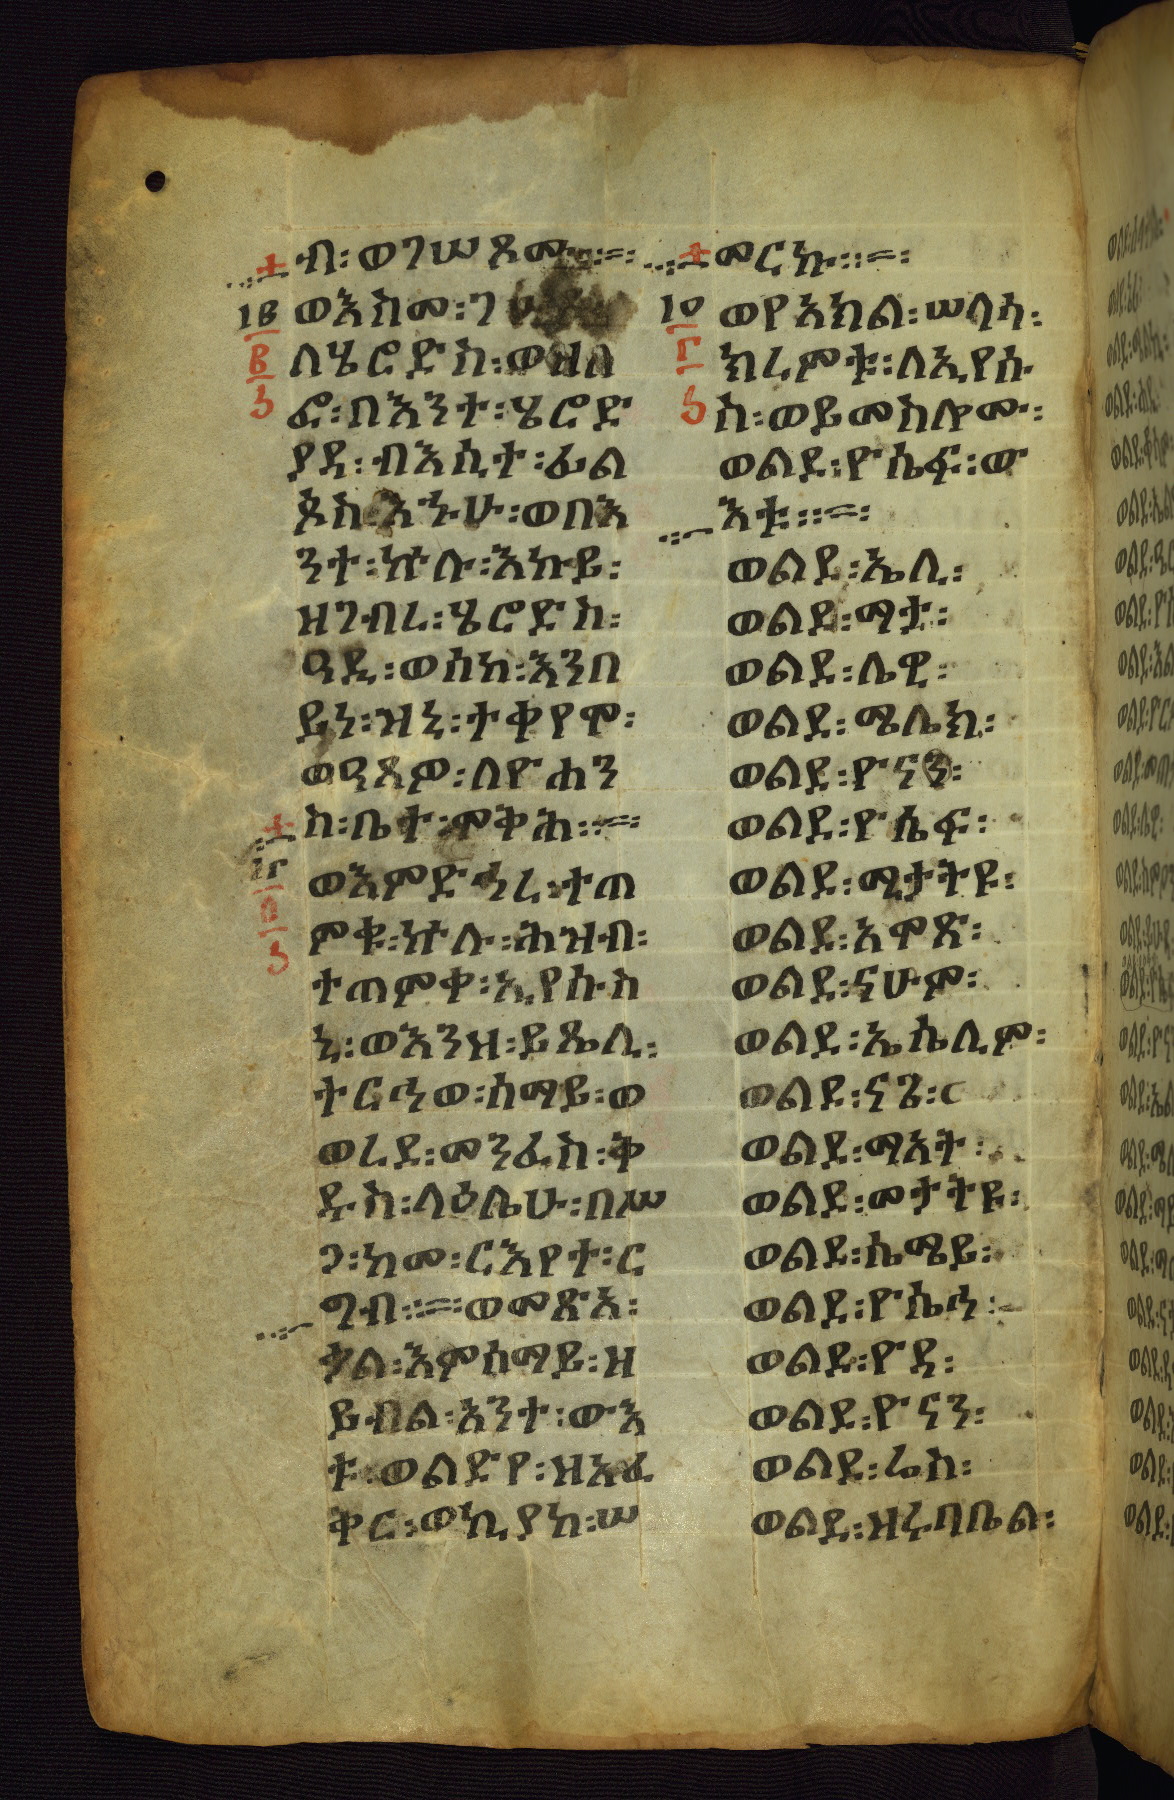 ብ፡ወገሠጾሙ፡፡=፡
ወእስመ፡
ለሄሮድስ፡ወዝለ
ፎ፡በእንተ፡ሄሮድ
ያዳ፡ብእሲተ፡ፊል
ጶስ፡እኁሁ፡ወበእ
ንተ፡ኵሉ፡እኩይ፡
ዘገብረ፡ሄሮድስ፡
ዓዲ፡ወሰከ፡እንበ
ይነ፡ዝኒ፡ተቀየሞ፡
ወዓጸዎ፡ለዮሐን
ስ፡ቤተ፡ሞቅሕ፡፡=፡
ወእምድኅረ፡ተጠ
ምቁ፡ኵሉ፡ሕዝብ፡
ተጠምቀ፡ኢየሱስ
ኒ፡ወእንዘ፡ይጼሊ፡
ተርኅወ፡ሰማይ፡ወ
ወረደ፡መንፈስ፡ቅ
ዱስ፡ላዕሌሁ፡በሥ
ጋ፡ከመ፡ርእየተ፡ር
ግብ፡፡=፡ወመጽአ፡
ቃል፡እምሰማይ፡ዘ
ይብል፡አንተ፡ውእ
ቱ፡ወልድየ፡ዘአፈ
ቅር፡ወኪያከ፡ሠ
መርኩ፡፡=፡
፲፪
፪
፫
፲፫
፬
፫
፲፬
፫
፫
ወየአክል፡ሠላሳ፡
ክረምቱ፡ለኢየሱ
ስ፡ወይመስሎሙ፡
ወልደ፡ዮሴፍ፡ው
እቱ፡፡=፡
ወልደ፡ኤሊ፡
ወልደ፡ማቲ፡
ወልደ፡ሌዊ፡
ወልደ፡ሜሌክ፡
ወልደ፡ዮናን፡
ወልደ፡ዮሴፍ፡
ወልደ፡ሚታትዩ፡
ወልደ፡አሞጽ፡
ወልደ፡ናሁም፡
ወልደ፡ኤሴሊም፡
ወልደ፡ናጌ፡
ወልደ፡ማአት፡
ወልደ፡መታትዩ፡
ወልደ፡ሴሜይ፡
ወልደ፡ዮሴኅ፡
ወልደ፡ዮዳ፡
ወልደ፡ዮናን፡
ወልደ፡ሬስ፡
ወልደ፡ዘሩባቤል፡